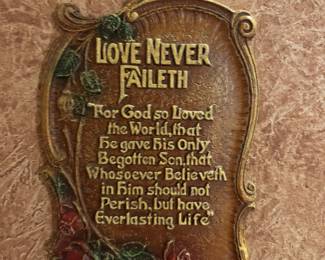 LOVE NEVER
FAILETH
"For God so Loved
the World, that
he gave his Only
Begotten Son, that
Whosoever Believeth
in him should not
Perish, but have
Everlasting Life"